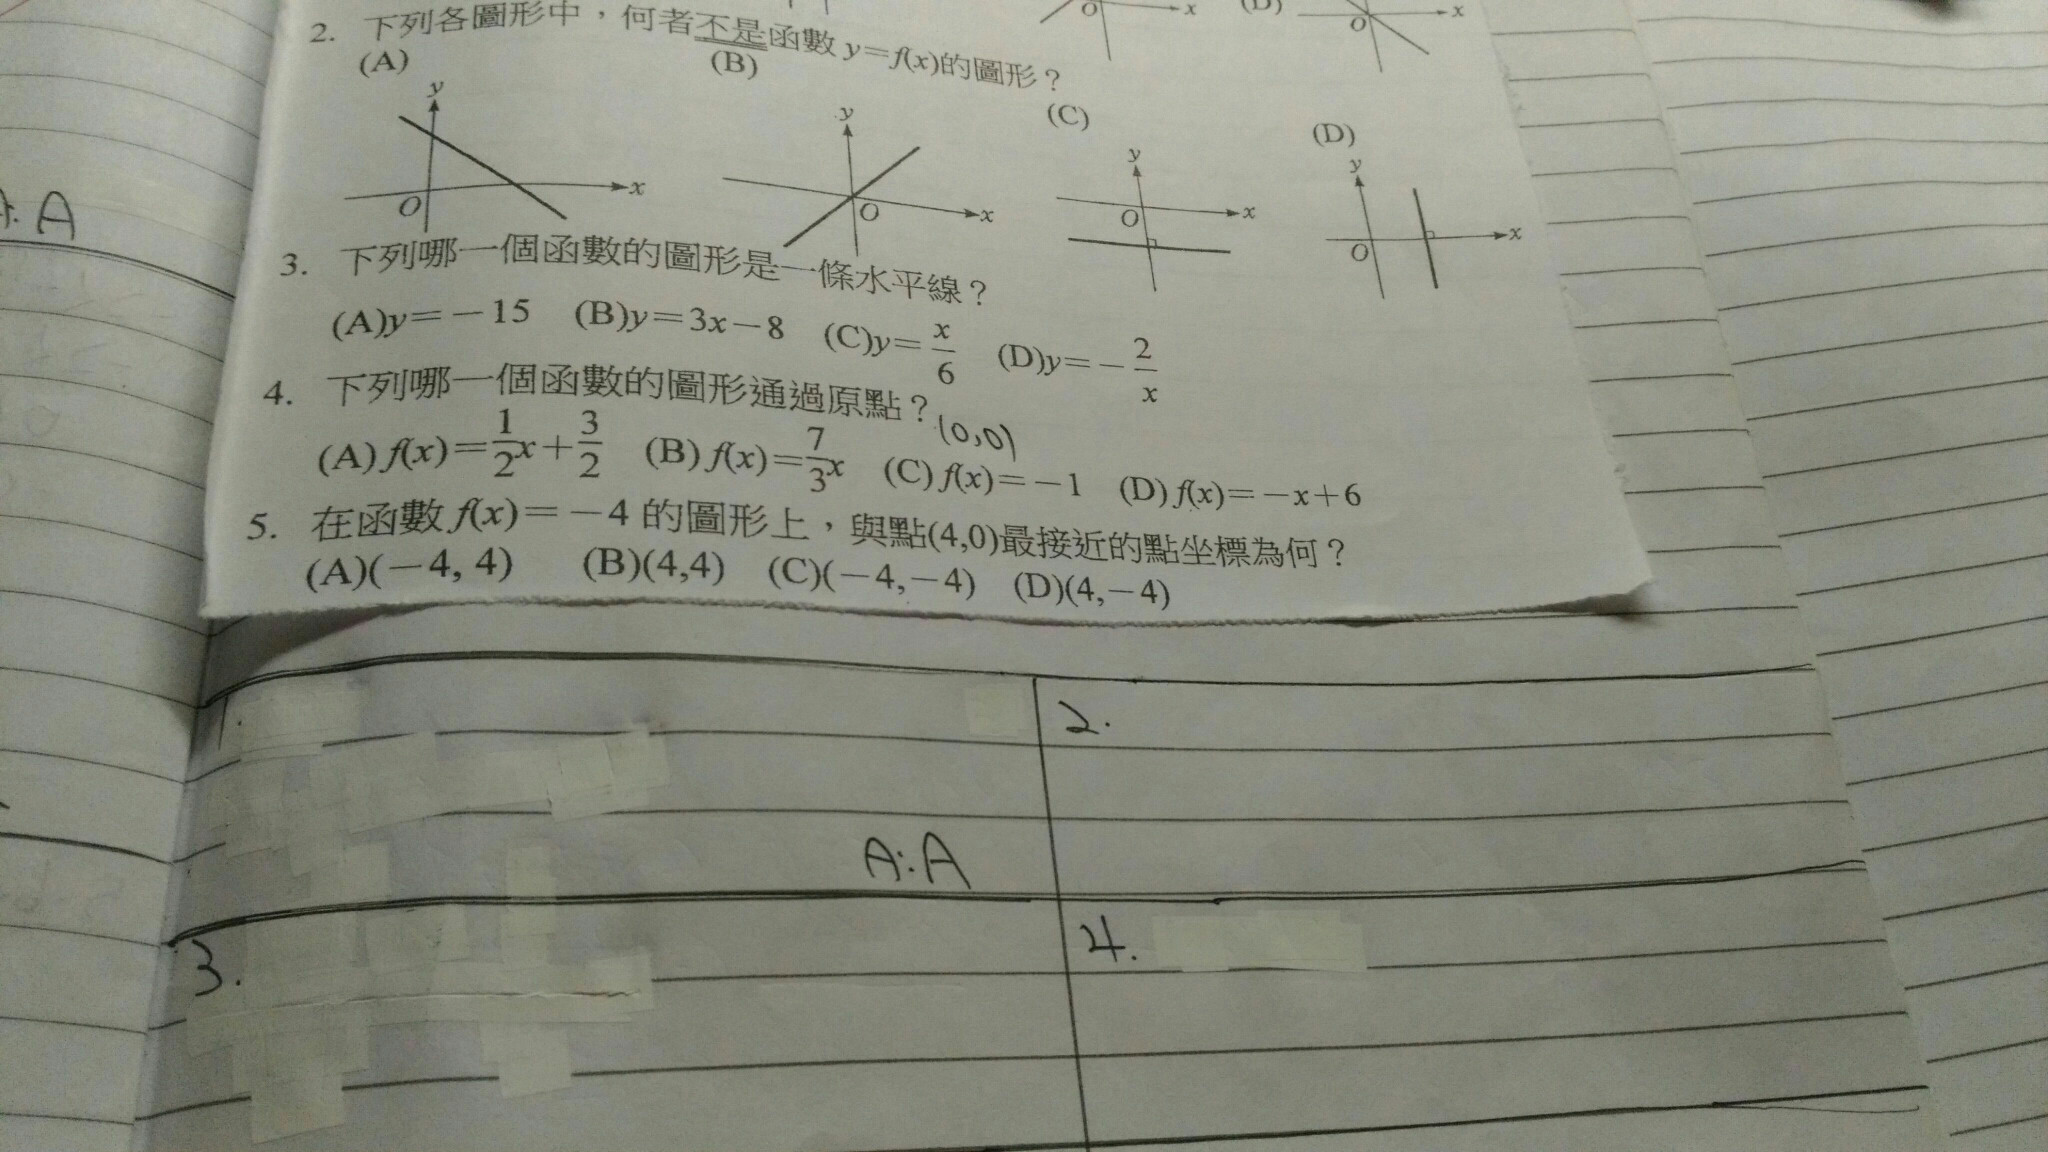 O x (D) O x
2. 下列各圖形中，何者不是函數 y=f(x)的圖形？
(A) (B) (C) (D)
y O x y O x y O x y O x
3. 下列哪一個函數的圖形是一條水平線？
(A)y=－15 (B)y=3x－8 (C)y=x/6 (D)y=－2/x
4. 下列哪一個函數的圖形通過原點？(0,0)
(A) f(x)=1/2x+3/2 (B) f(x)=7/3x (C) f(x)=－1 (D) f(x)=－x+6
5. 在函數 f(x)=－4 的圖形上，與點(4,0)最接近的點坐標為何？
(A)(－4, 4) (B)(4,4) (C)(－4,－4) (D)(4,－4)
A: A
2.
A:A
3.
4.